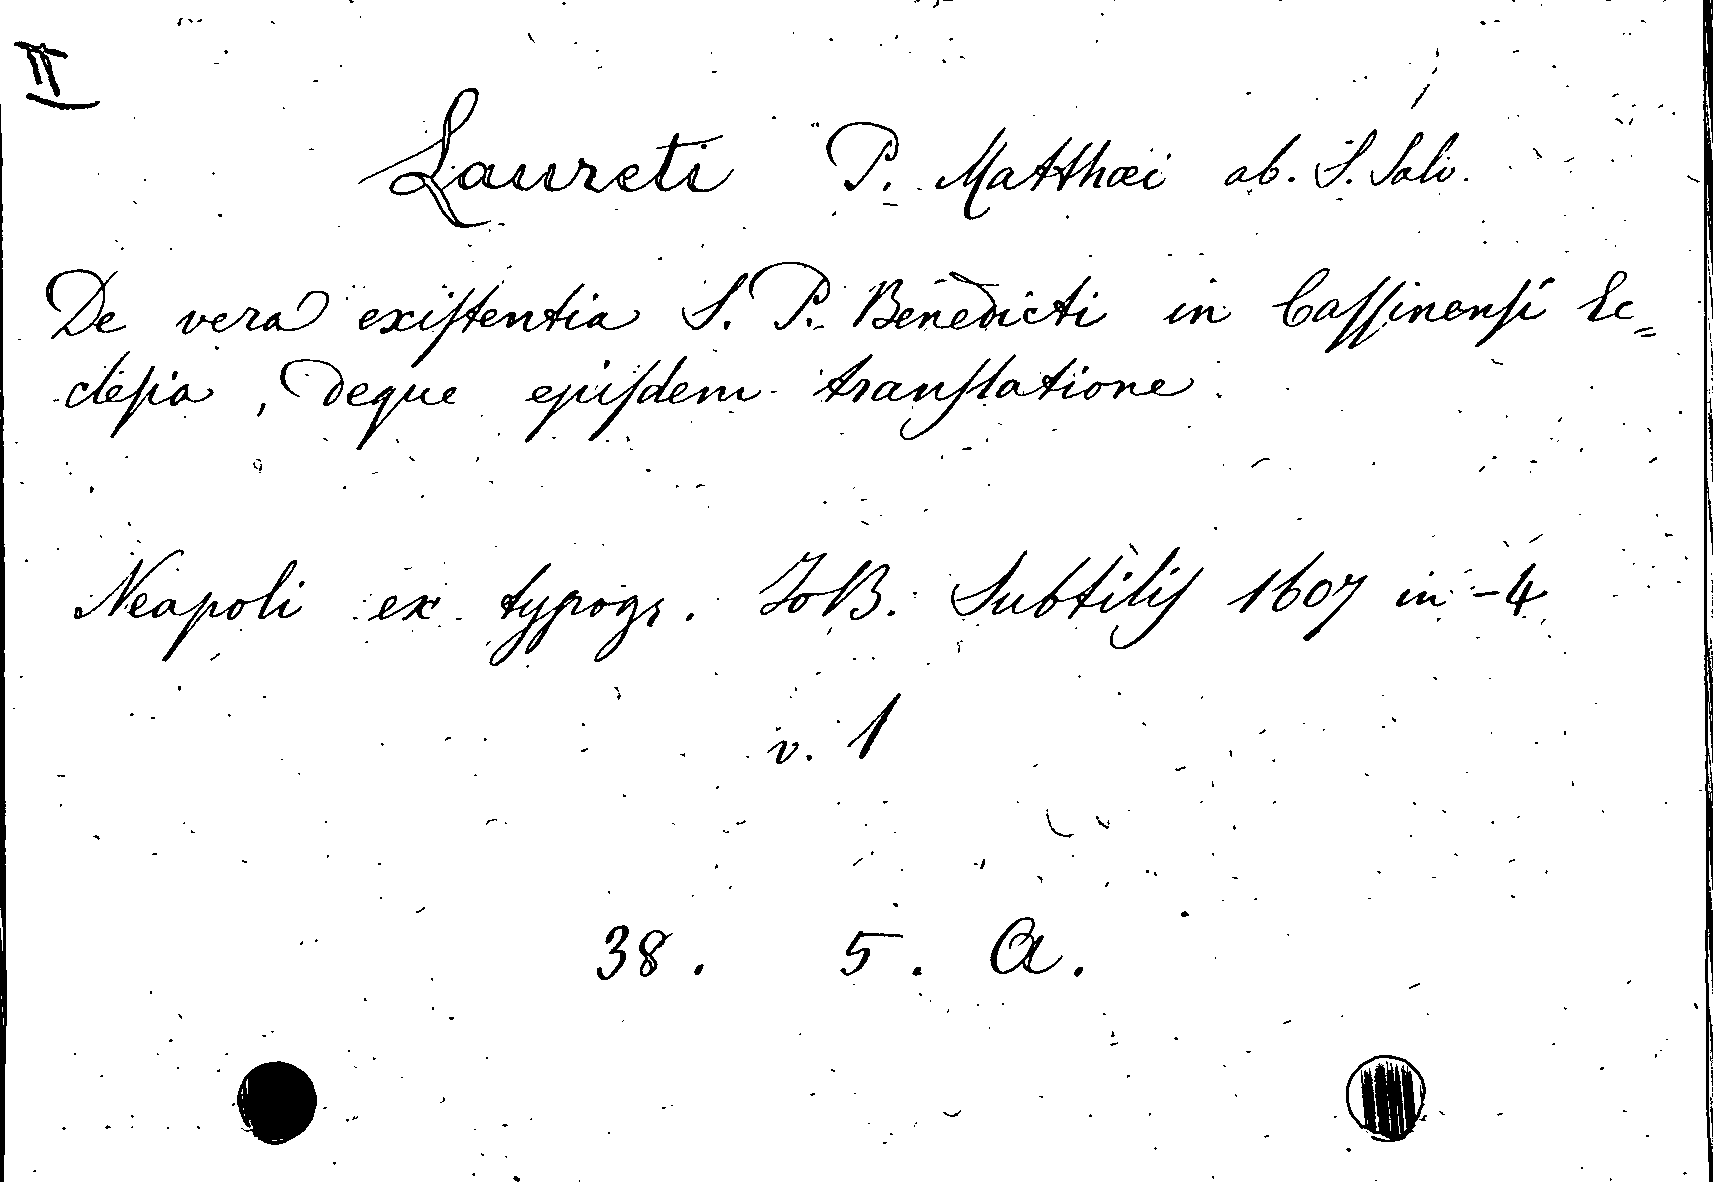 II
Laureti P. Matthæi ab. S. Salv.
De vera existentia S. P. Benedicti in Cassinensi Ec=
clesia, deque ejusdem translatione.
Neapoli ex typogr. Jo B. Subtilis 1607 in-4
v. 1
38. 5. A.